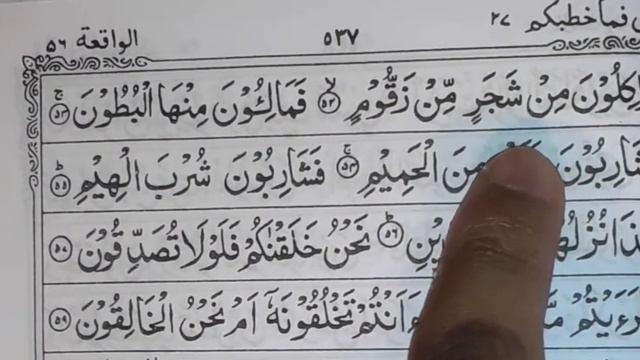 فماخطبكم ٢٧ ٥٣٧ الواقعة ٥٦
اٰكِلُوْنَ مِنْ شَجَرٍ مِّنْ زَقُّوْمٍ ۙ﴿٥٢﴾ فَمَالِـُٔوْنَ مِنْهَا الْبُطُوْنَ ۚ﴿٥٣﴾
مِنَ الْحَمِيْمِ ۚ﴿٥٤﴾ فَشَارِبُوْنَ شُرْبَ الْهِيْمِ ؕ﴿٥٥﴾
نُزُلُهُمْ ؕ﴿٥٦﴾ نَحْنُ خَلَقْنٰكُمْ فَلَوْلَا تُصَدِّقُوْنَ ﴿٥٨﴾
ءَاَنْتُمْ تَخْلُقُوْنَهٗٓ اَمْ نَحْنُ الْخَالِقُوْنَ ﴿٥٩﴾